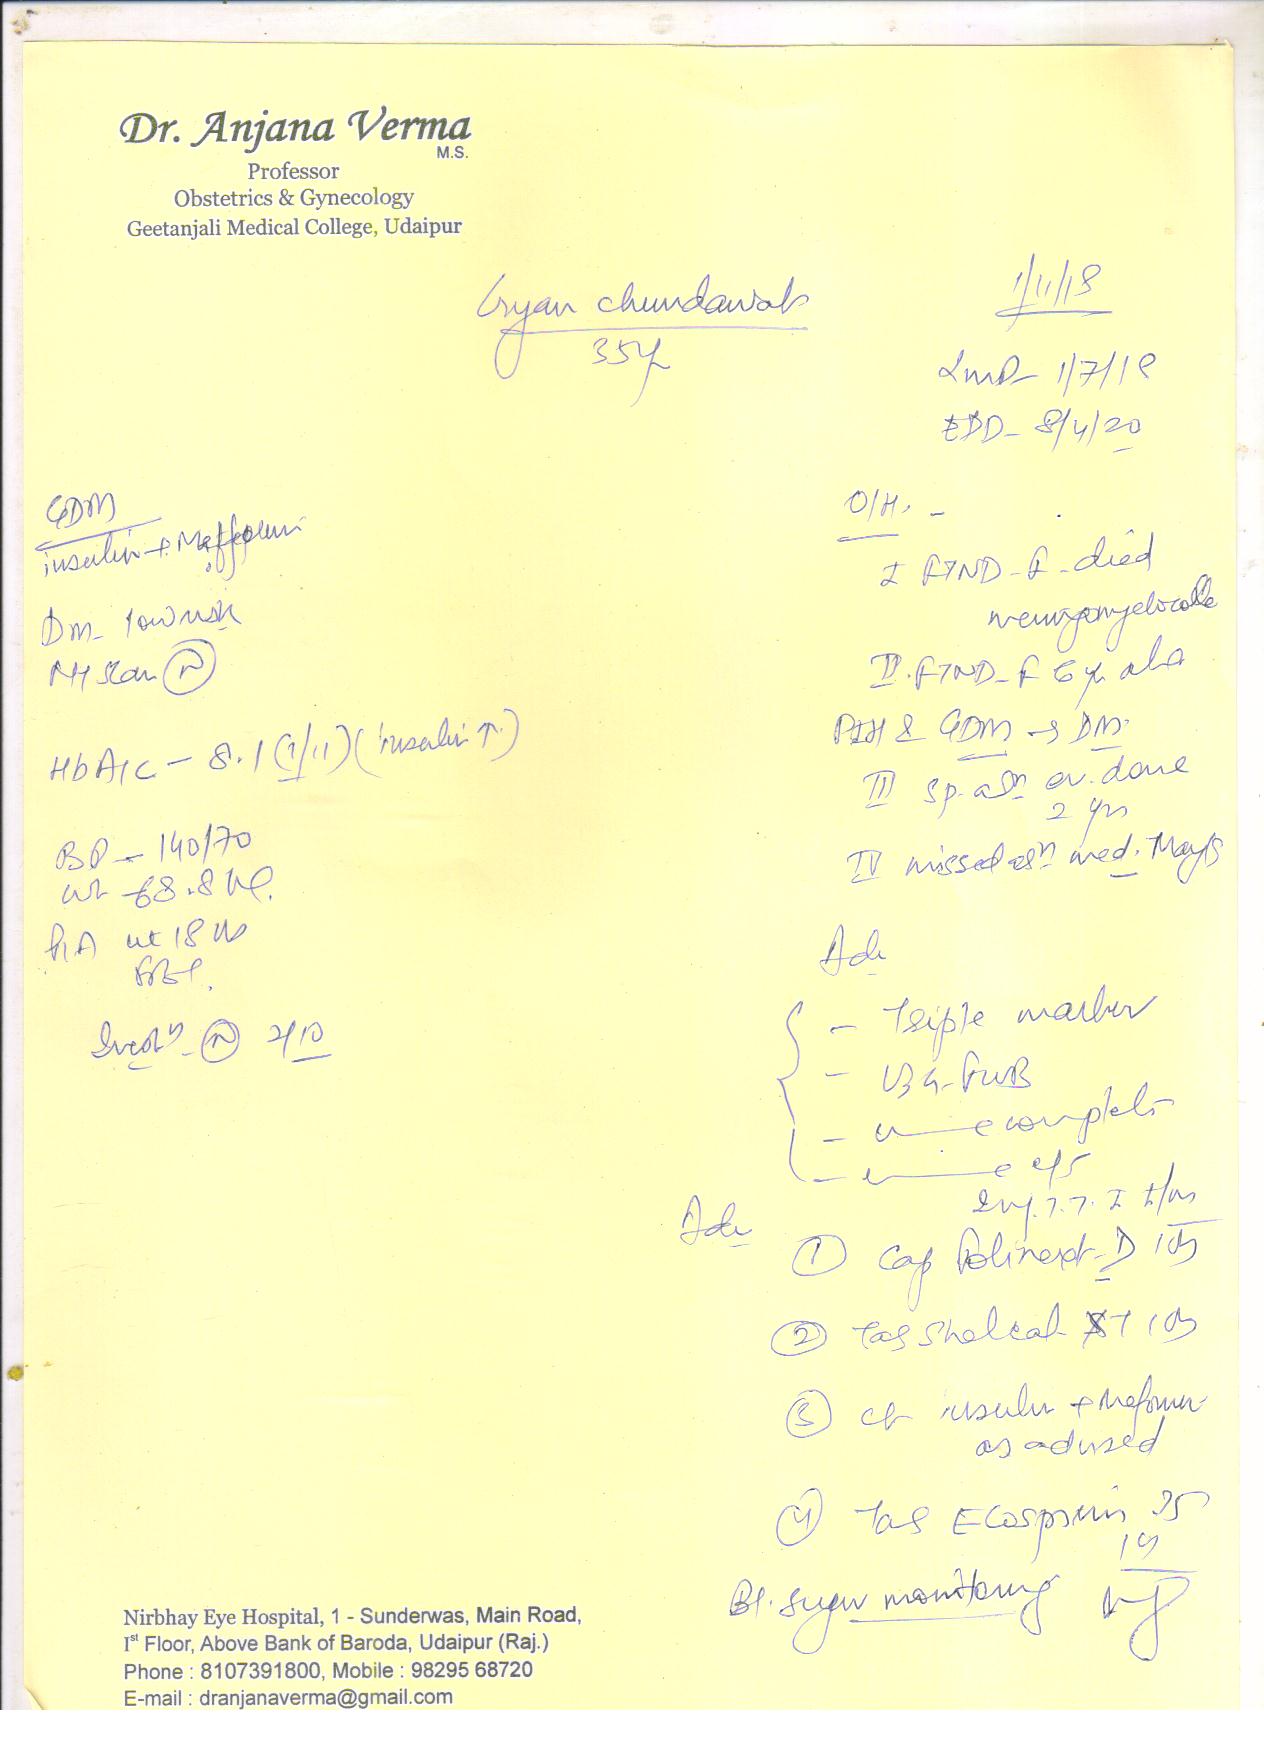 Dr. Anjana Verma
M.S.
Professor
Obstetrics & Gynecology
Geetanjali Medical College, Udaipur
Gyan Chundawat
35y
1/11/18
LMP- 1/7/18
EDD- 8/4/20
GDM
insulin +
DM- low risk
NT Scan (N)
HbA1c - 8.1 (1/11) (insulin ↑)
BP - 140/70
wt - 68.8 kg.
P/A ut 18 wks
(N) 2/10
O/H. -
I FTND - F - died
II. FTND - F 6 yr
PIH & GDM → DM
III sp. abn ev. done
2 yrs
IV missed abn med.
Adv
- Triple marker
- USG - FWB
- complete
- c/s
Inj. T.T. I I/m
Adv
① Cap D 1 OD
② Tab Shelcal XT 1 OD
③ ct insulin +
as advised
④ Tab Ecosprin 75
1 OD
Bl. sugar monitoring
Nirbhay Eye Hospital, 1 - Sunderwas, Main Road,
Ist Floor, Above Bank of Baroda, Udaipur (Raj.)
Phone : 8107391800, Mobile : 98295 68720
E-mail : dranjanaverma@gmail.com